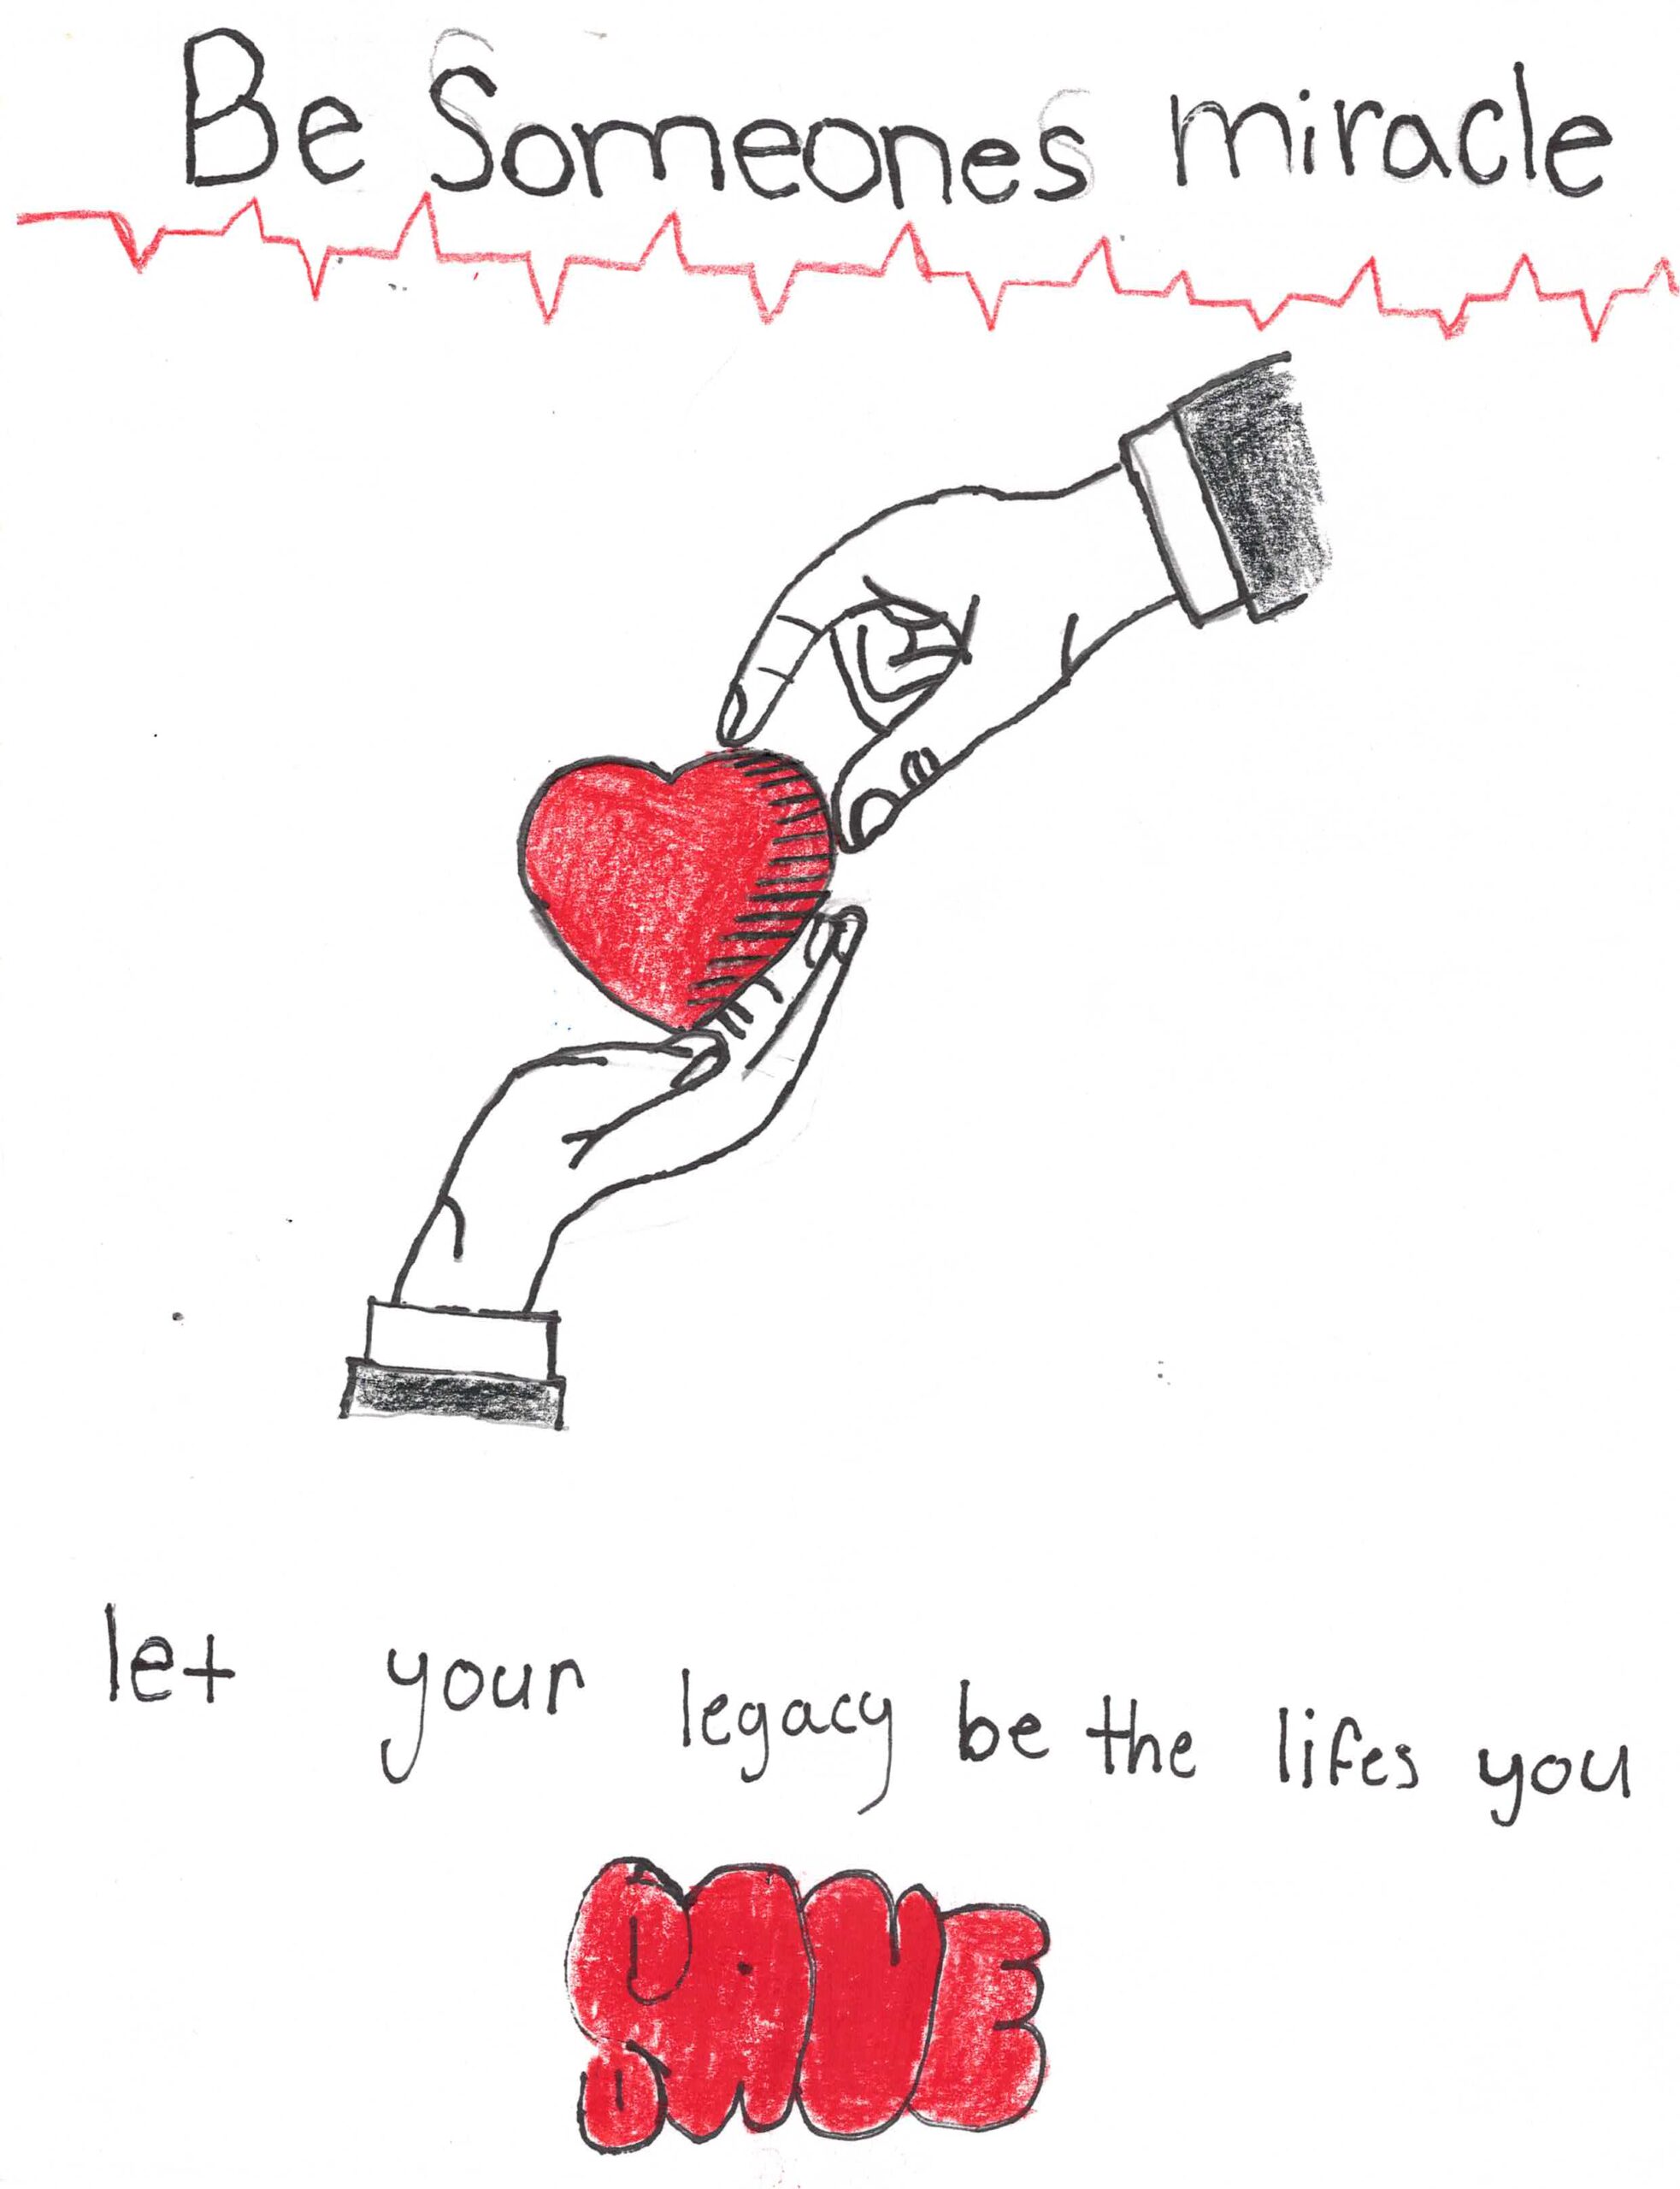 Be Someones miracle
let your legacy be the lifes you
SAVE